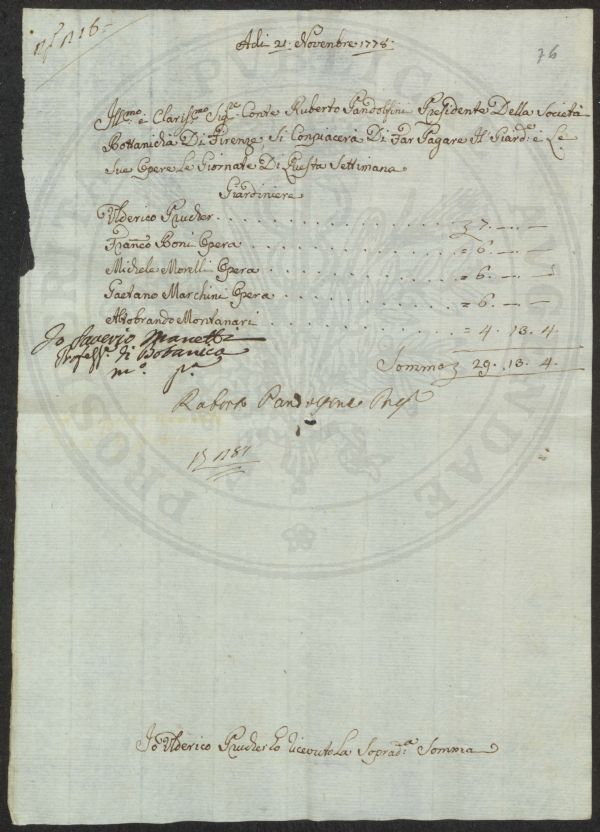 N.º 16
Adi 21: Novembre 1778:
76
Ill.mo e Clariss.mo Sig.re Conte Ruberto Pandolfini Presidente Della Società
Bottanicha Di Firenze Si Conpiacerà Di Far Pagare Al Giard.e e Le
Sue Opere Le Giornate Di Questa Settimana
Giardiniere
Ulderico Prucher . . . . . . . = 7. — . —
Franco Boni Opera . . . . . . = 6. — . —
Michele Morelli Opera . . . . . . = 6. — . —
Gaetano Marchini Opera . . . . . . = 6. — . —
Altobrando Montanari . . . . . . = 4. 13. 4.
Io Saverio Manetti
Profess.e di Botanica
m.o p.a
Somma 29. 13. 4.
Roberto Pandolfini Pres
Io Ulderico Prucher ho riceuto La Soprad.a Somma